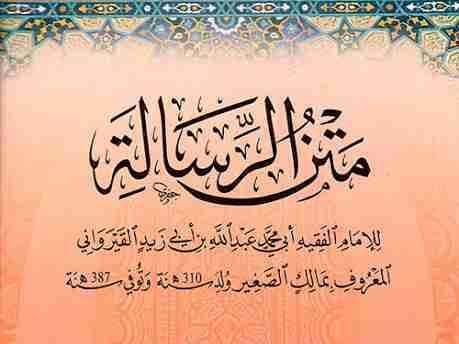 مَتْنُ الرِّسَالَةِ
لِلإِمَامِ الفَقِيهِ أَبِي مُحَمَّدٍ عَبْدِ اللَّهِ بْنِ أَبِي زَيْدٍ القَيْرَوَانِي
المَعْرُوفِ بِمَالِكٍ الصَّغِيرِ وُلِدَ سَنَةَ 310 هـ وَتُوُفِّيَ سَنَةَ 387 هـ